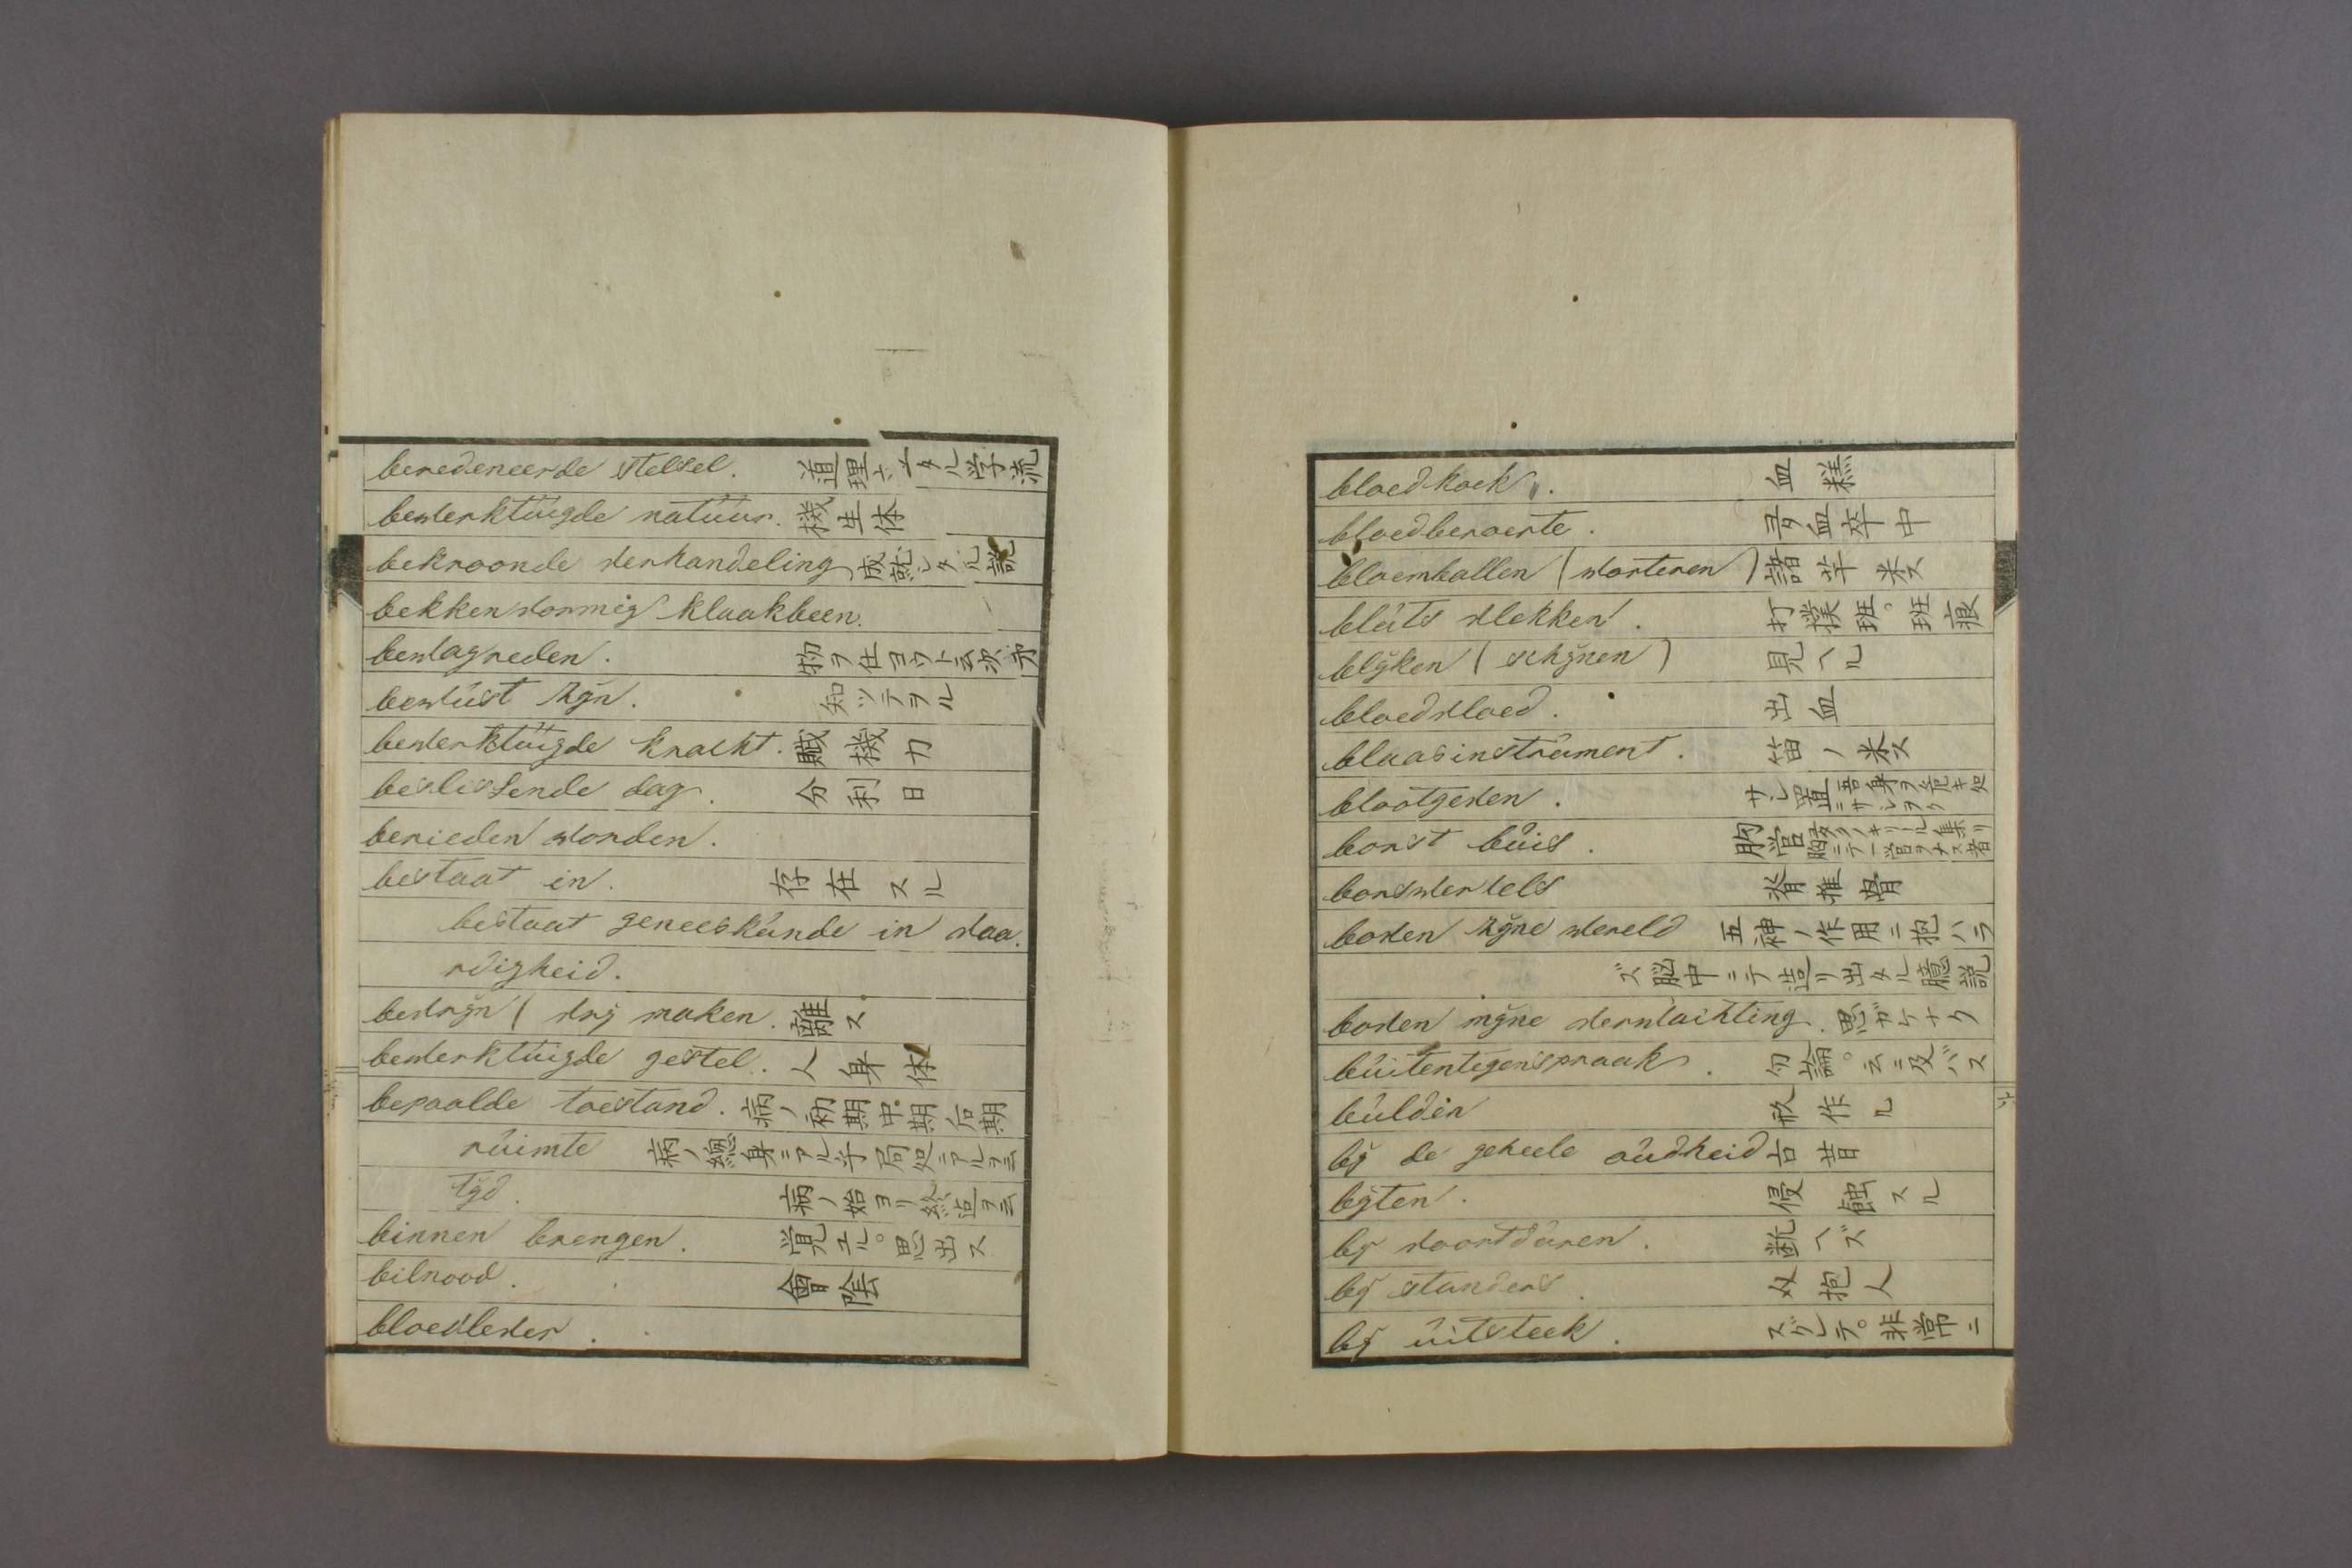 beredeneerde stelsel. 道理ニ学流
bewerktüigde natüur. 機生体
bekroonde verhandeling 成就シタル説
bekkenvormig klaakbeen.
bewlagreden. 物ヲ仕ヨウト云次才
bewüst zijn. 知ツテヲル
bewerktüigde kracht. 臓機力
beslissende dag. 分利日
berieden worden.
bestaat in. 存在スル
bestaat geneeskünde in vaa.
rdigheid.
bevrijn ( vrij maken. 離ス
bewerktüigde gestel. 人身体
bepaalde toestand. 病ノ初期中期后期
rüimte 病ノ總身ニアル乎局処ニアルヲ云
tijd. 病ノ始ヨリ終迄ヲ云
binnen brengen. 覚エル。思出ス
bilnood. 會陰
bloedleder.
bloedkoek. 血糕
bloedberoerte. 多血卒中
bloemballen (worteren) 諸芋米ス
blüts vlekken. 打撲班。班痕
blijken (schijnen) 見ヘル
bloedvloed. 出血
blaasinstrüment. 笛ノ米ス
blootgeven. サレ置 吾身ヲ危キ処ニサレヲク
borst büis. 胸管
borswervels 脊椎骨
boven zijne wereld 五神ノ作用ニ抱ハラ
ズ脳中ニテ造リ出タル臆説
boven mijne verwlachting. 思ガケナク
büitentegenspraak. 勿論。云ニ及バス
büldin 形作ル
bij de geheele oüdheid 古昔
bijten. 侵蝕スル
bij voortdüren. 断ヘズ
bij standers. 介抱人
bij üitsteek. スグレテ。非常ニ